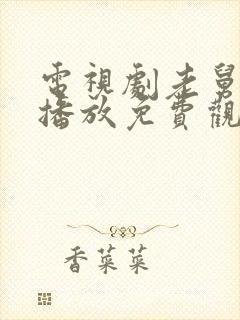 電視劇老舅
播放免費觀
香菜菜